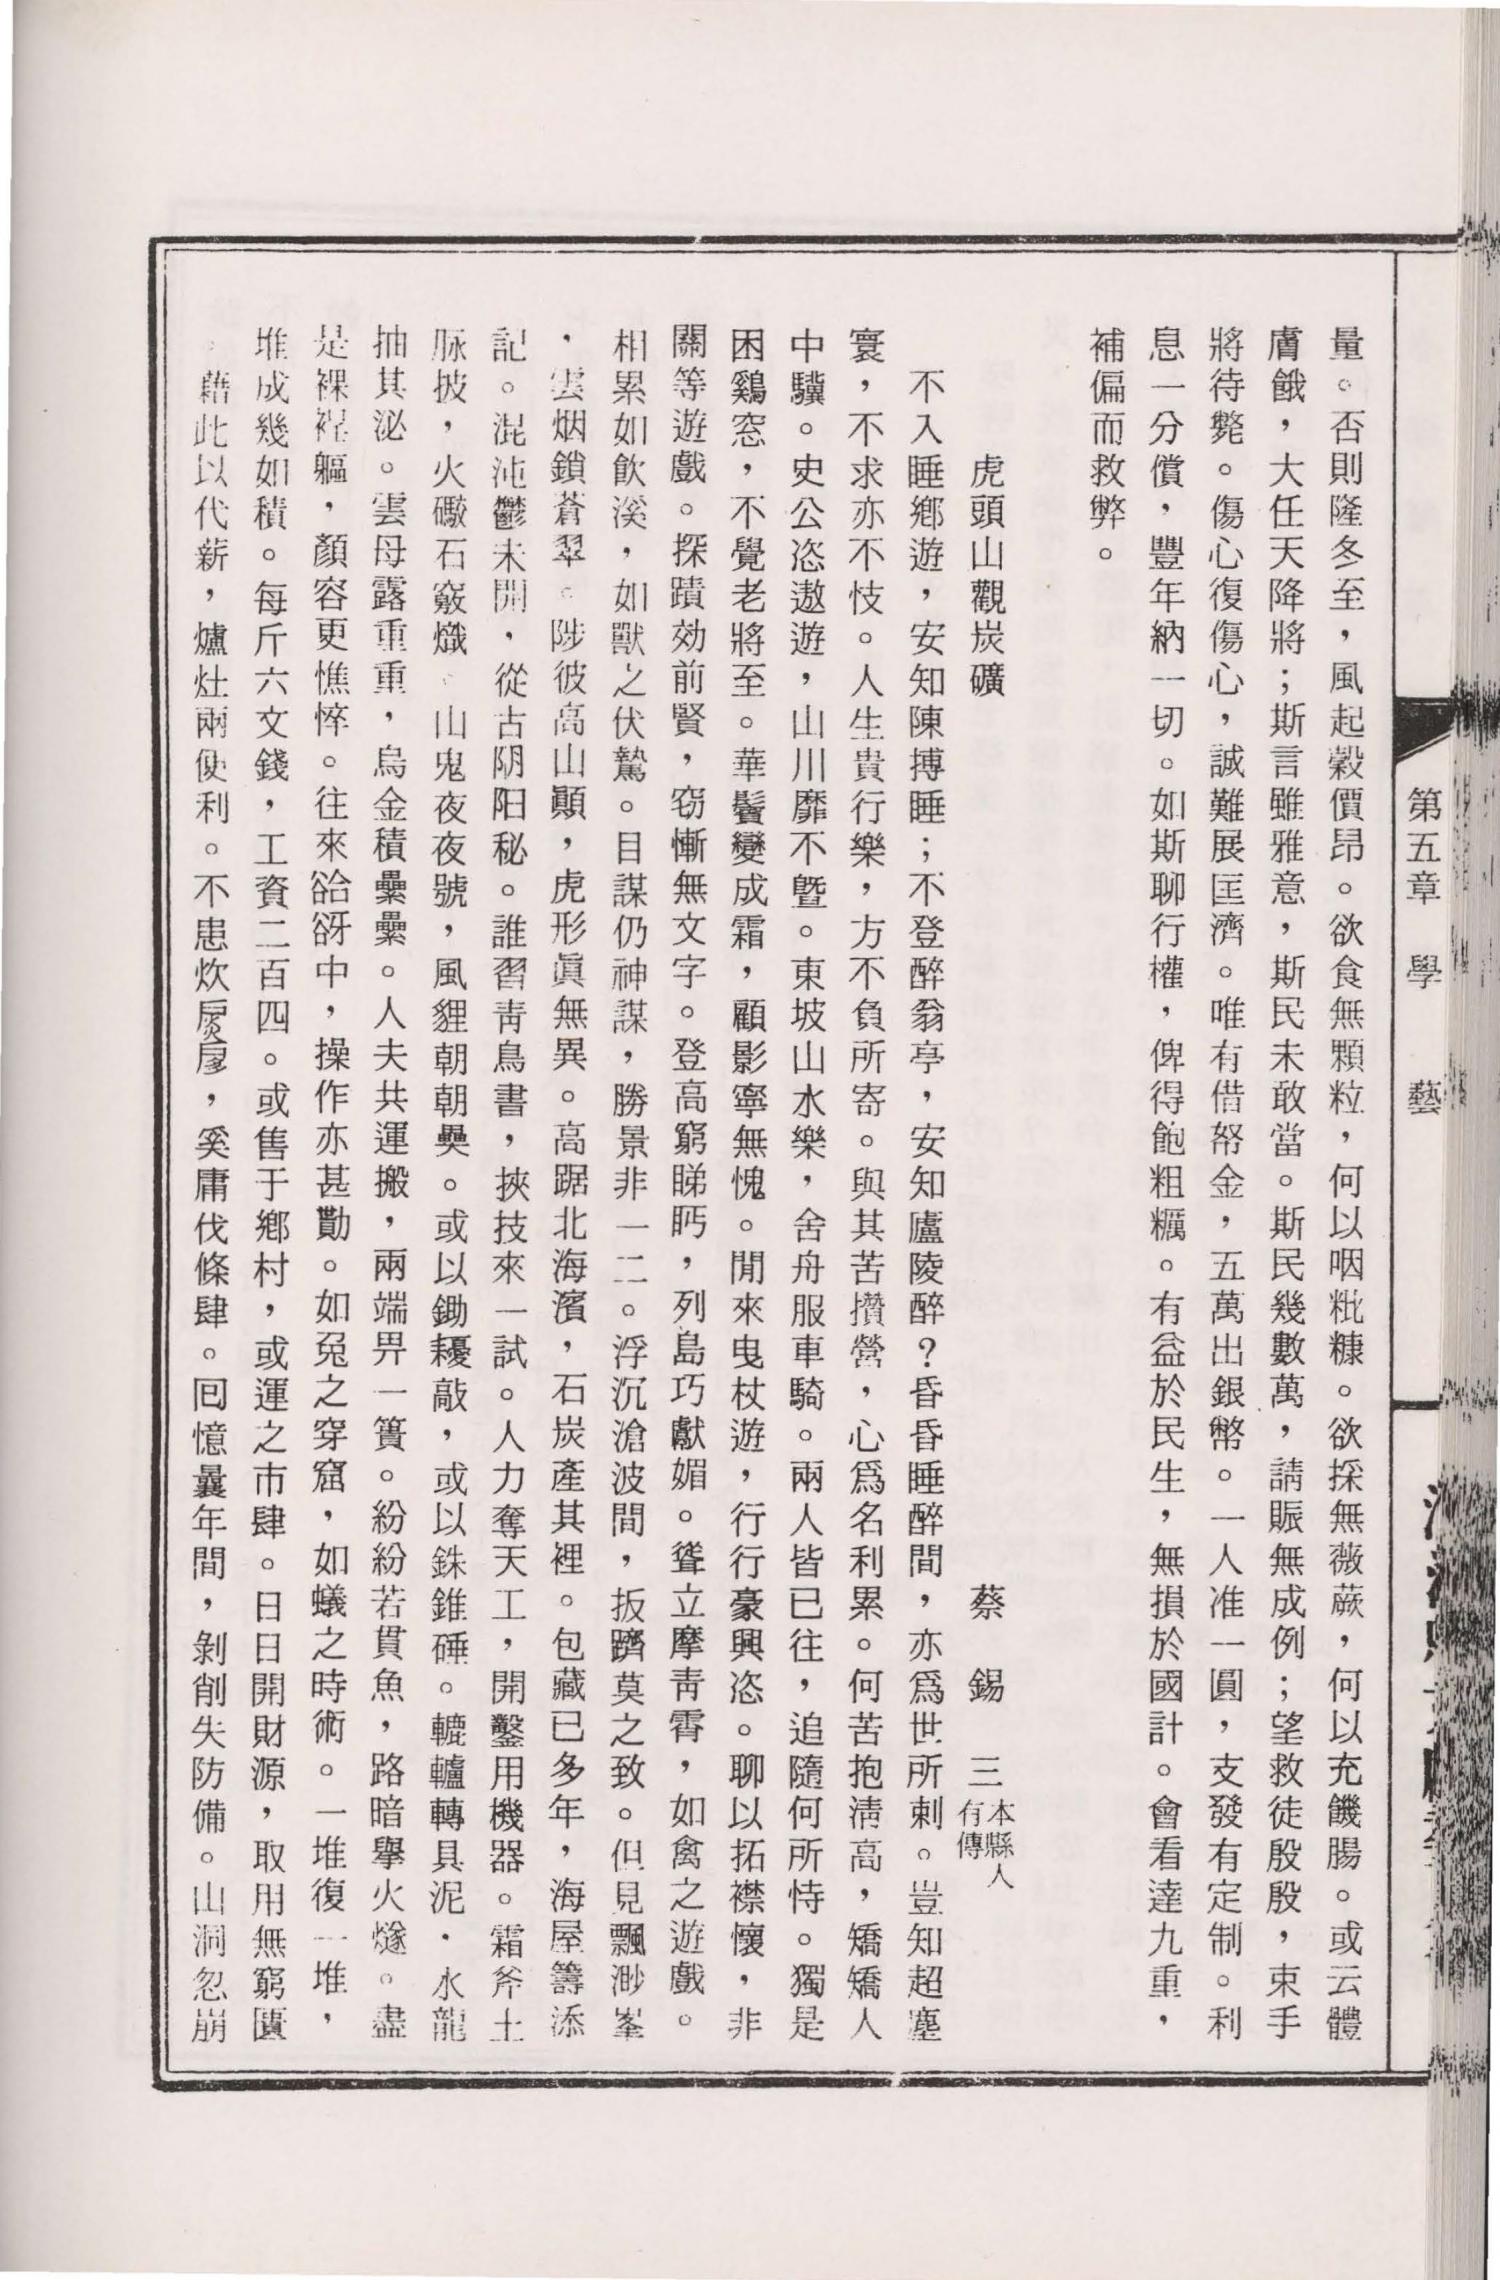 第五章　學　藝
量。否則隆冬至，風起穀價昂。欲食無顆粒，何以咽粃糠。欲採無薇蕨，何以充饑腸。或云體
膚餓，大任天降將；斯言雖雅意，斯民未敢當。斯民幾數萬，請賑無成例；望救徒殷殷，束手
將待斃。傷心復傷心，誠難展匡濟。唯有借帑金，五萬出銀幣。一人准一圓，支發有定制。利
息一分償，豐年納一切。如斯聊行權，俾得飽粗糲。有益於民生，無損於國計。會看達九重，
補偏而救弊。
虎頭山觀炭礦　蔡　錫　三　本縣人有傳
不入睡鄉遊，安知陳摶睡；不登醉翁亭，安知廬陵醉？昏昏睡醉間，亦爲世所刺。豈知超塵
寰，不求亦不忮。人生貴行樂，方不負所寄。與其苦攢營，心爲名利累。何苦抱淸高，矯矯人
中驥。史公恣遨遊，山川靡不曁。東坡山水樂，舍舟服車騎。兩人皆已往，追隨何所恃。獨是
困鷄窓，不覺老將至。華鬢變成霜，顧影寧無愧。閒來曳杖遊，行行豪興恣。聊以拓襟懷，非
關等遊戲。探蹟効前賢，窃慚無文字。登高窮睇眄，列島巧獻媚。聳立摩靑霄，如禽之遊戲。
相累如飮溪，如獸之伏騺。目謀仍神謀，勝景非一二。浮沉滄波間，扳躋莫之致。但見飄渺峯
，雲烟鎖蒼翠。陟彼高山顚，虎形眞無異。高踞北海濱，石炭產其裡。包藏已多年，海屋籌添
記。混沌鬱未開，從古阴阳秘。誰習靑鳥書，挾技來一試。人力奪天工，開鑿用機器。霜斧土
脉披，火礮石竅熾。山鬼夜夜號，風貍朝朝㚃。或以鋤耰敲，或以銖錐硾。轆轤轉具泥，水龍
抽其泌。雲母露重重，烏金積纍纍。人夫共運搬，兩端畀一簣。紛紛若貫魚，路暗擧火燧。盡
是裸裎軀，顏容更憔悴。往來谽谺中，操作亦甚勩。如兎之穿窟，如蟻之時術。一堆復一堆，
堆成幾如積。每斤六文錢，工資二百四。或售于鄉村，或運之市肆。日日開財源，取用無窮匱
，藉此以代薪，爐灶兩便利。不患炊扊扅，奚庸伐條肄。囘憶曩年間，剝削失防備。山洞忽崩